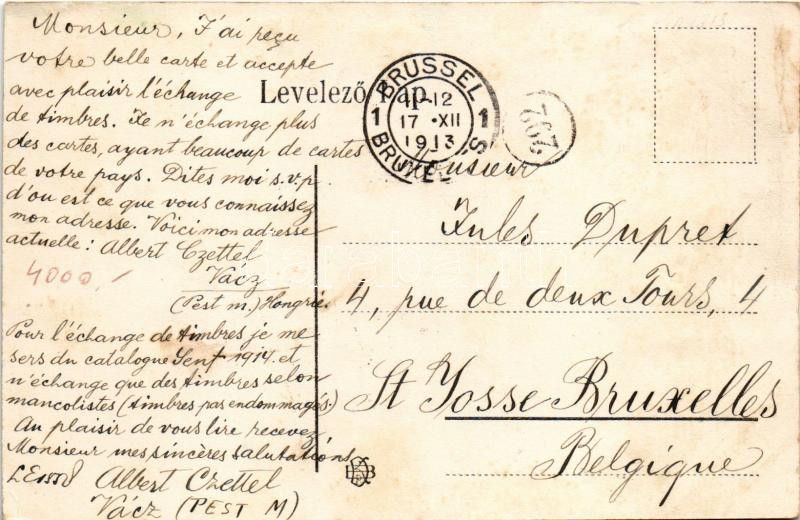 Monsieur, J'ai reçu
votre belle carte et accepte
avec plaisir l'échange
de timbres. Je n'échange plus
des cartes, ayant beaucoup de cartes
de votre pays. Dites moi s.v.p.
d'ou est ce que vous connaissez
mon adresse. Voici mon adresse
actuelle: Albert Czettel
Vácz
(Pest m.) Hongrie.
4000,-
Pour l'échange de timbres je me
sers du catalogue Senf 1914 et
n'échange que des timbres selon
mancolistes (timbres pas endommagés.)
Au plaisir de vous lire recevez
Monsieur mes sincères salutations
Albert Czettel
Vácz (PEST M)
Levelező Lap
BRUSSEL
11-12
1 17 XII 1
1913
BRUXELLES
292
Monsieur
Jules Dupret
4, rue de deux Tours, 4
St Josse Bruxelles
Belgique